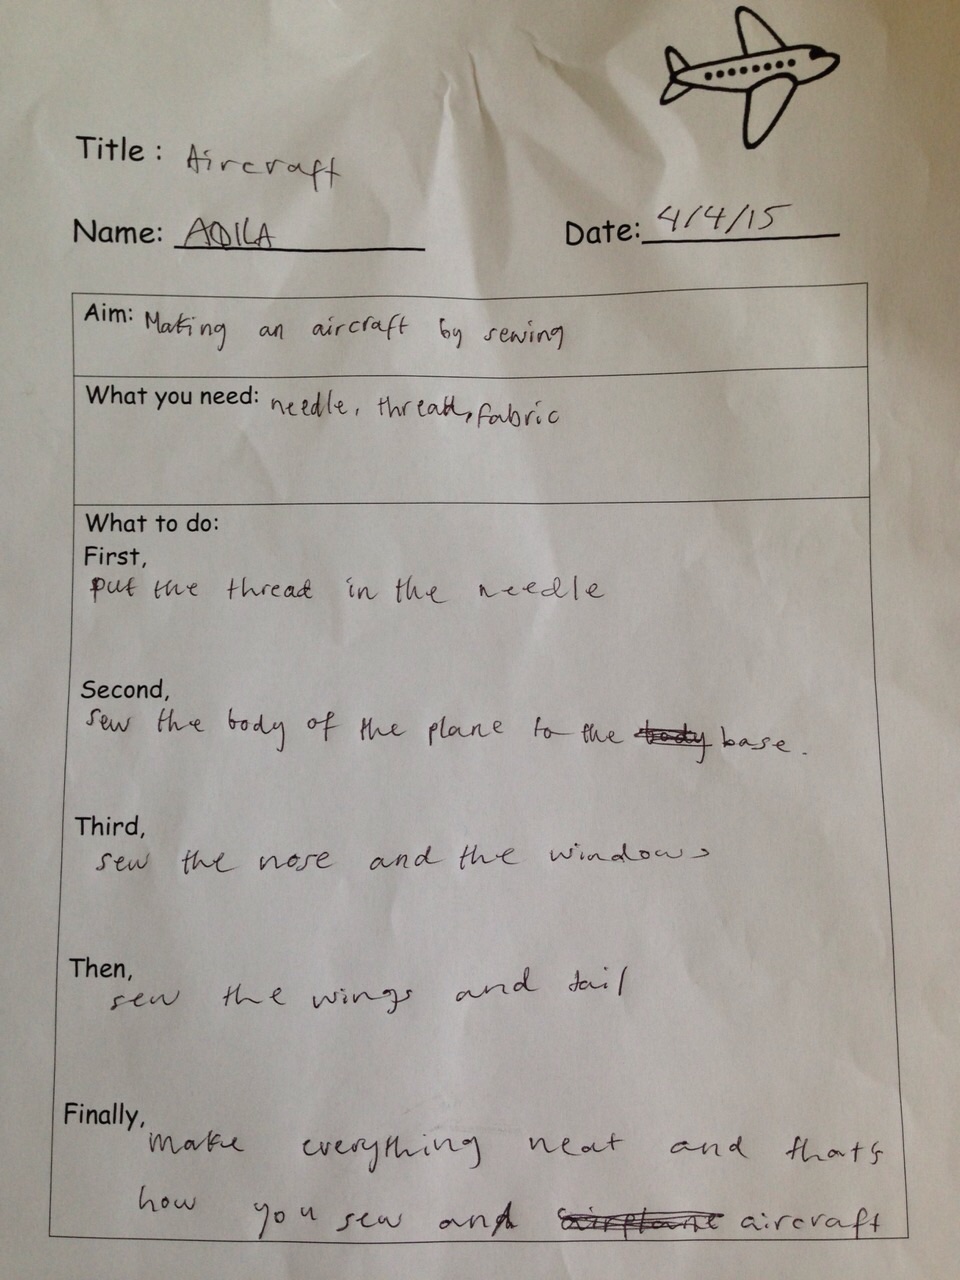 Title : Aircraft
Name: AQILA Date: 4/4/15
Aim: Making an aircraft by sewing
What you need: needle, thread, fabric
What to do:
First,
put the thread in the needle
Second,
sew the body of the plane to the body base.
Third,
sew the nose and the windows
Then,
sew the wings and tail
Finally,
make everything neat and that's
how you sew and airplane aircraft